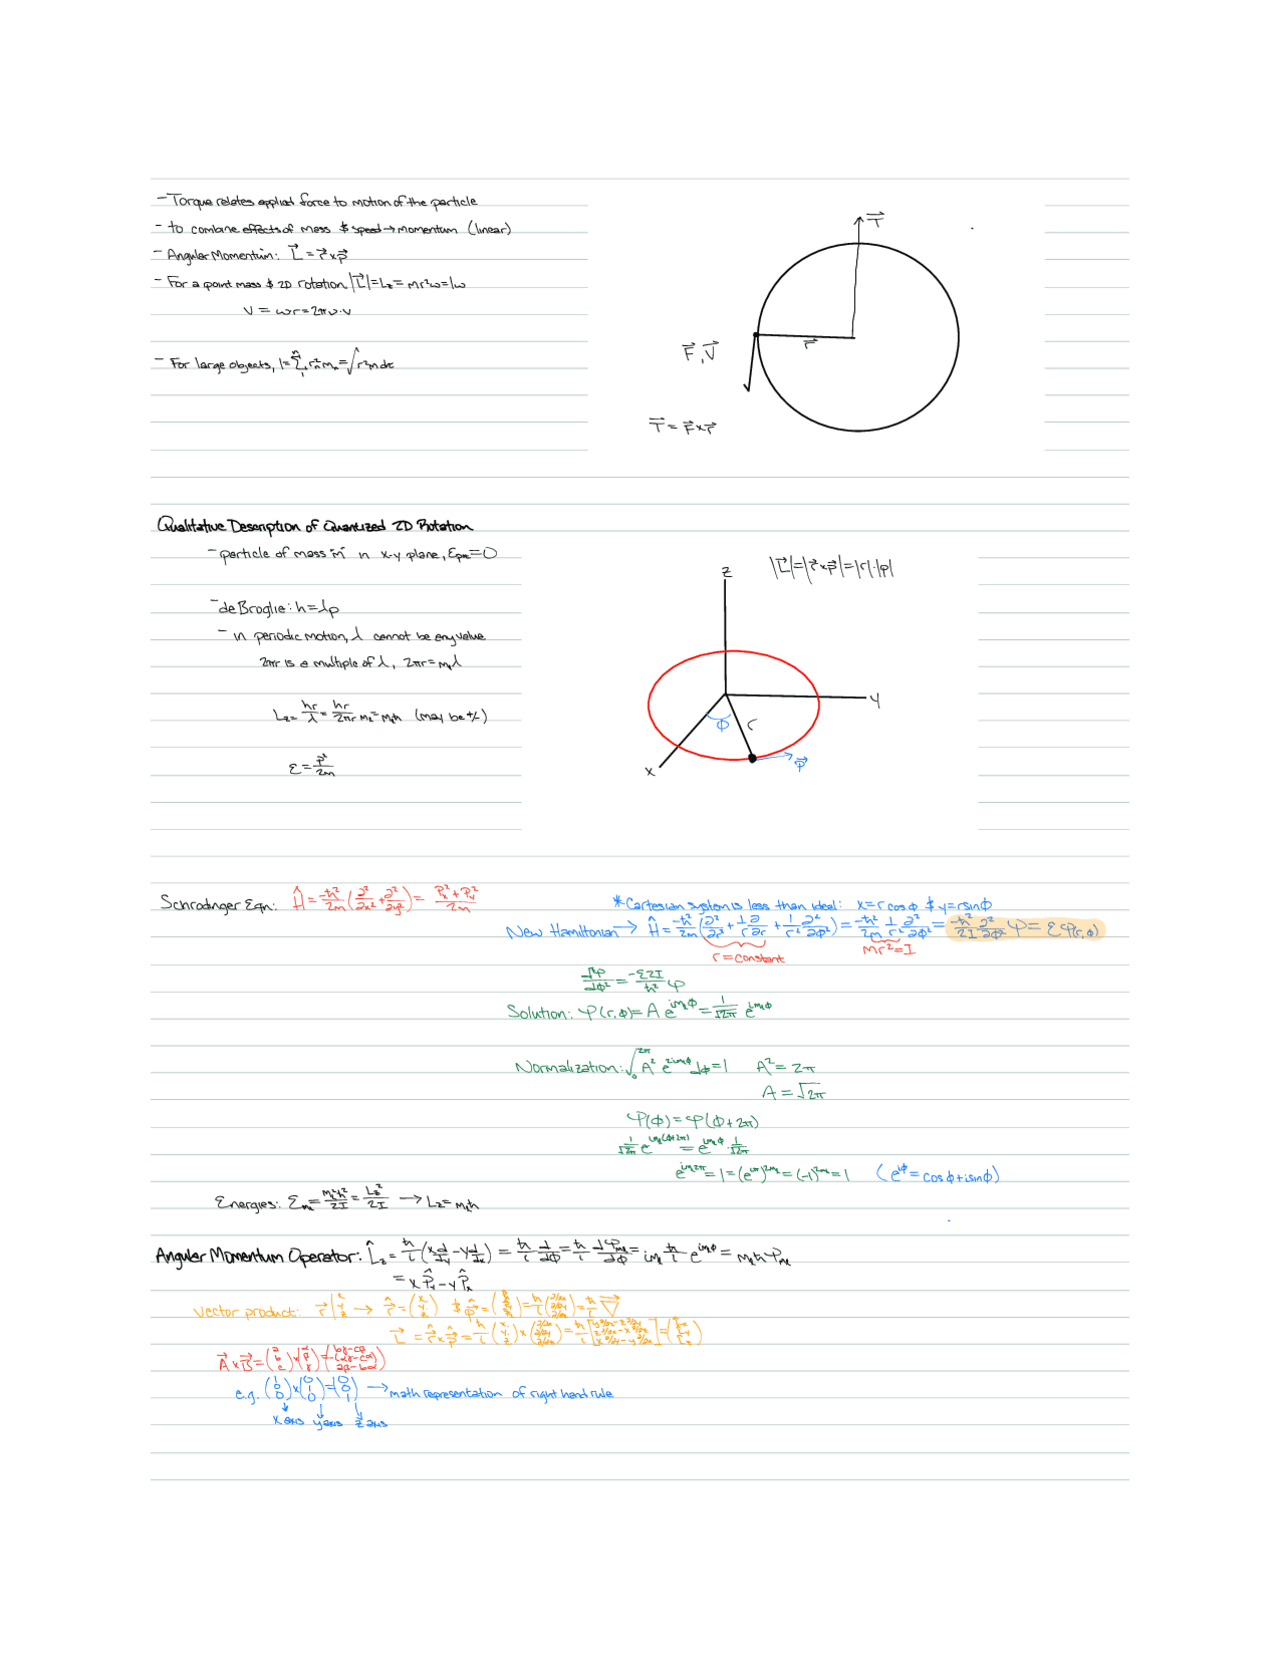 - Torque relates applied force to motion of the particle
- to combine effects of mass & speed → momentum (linear)
- Angular Momentum: L⃗ = r⃗ x p⃗
- For a point mass & 2D rotation |L⃗| = Lz = mr²ω = Iω
V = ωr = 2πν·v
- For large objects, I = Σ rₙ² mₙ = ∫ r² m dτ
T⃗
r⃗
F⃗, V⃗
T⃗ = F⃗ x r⃗
Qualitative Description of Quantized 2D Rotation
- particle of mass "m" in x-y plane, Epot = 0
- de Broglie: h = λp
- in periodic motion, λ cannot be any value
2πr is a multiple of λ, 2πr = mₗλ
Lz = hr/λ = hr/2πr mₗ = mₗħ (may be +/-)
ε = p²/2m
|L⃗| = |r⃗ x p⃗| = |r|·|p|
z
y
x
ϕ
r
p⃗
Schrodinger Eqn: Ĥ = -ħ²/2m (∂²/∂x² + ∂²/∂y²) = Px² + Py² / 2m
* Cartesian system is less than ideal: x = r cosϕ & y = r sinϕ
New Hamiltonian → Ĥ = -ħ²/2m (∂²/∂r² + 1/r ∂/∂r + 1/r² ∂²/∂ϕ²) = -ħ²/2m 1/r² ∂²/∂ϕ² = -ħ²/2I ∂²/∂ϕ² ψ = εψ(r,ϕ)
r = constant
mr² = I
d²ψ/dϕ² = -ε2I/ħ² ψ
Solution: ψ(r,ϕ) = A e^{imₗϕ} = 1/√2π e^{imₗϕ}
Normalization: ∫₀^{2π} A² e^{2imₗϕ} dϕ = 1 A² = 2π
A = √2π
ψ(ϕ) = ψ(ϕ+2π)
1/√2π e^{imₗ(ϕ+2π)} = e^{imₗϕ} · 1/√2π
e^{imₗ2π} = 1 = (e^{iπ})^{2mₗ} = (-1)^{2mₗ} = 1 (e^{iϕ} = cosϕ + isinϕ)
Energies: Emₗ = mₗ²ħ²/2I = Lz²/2I → Lz = mₗħ
Angular Momentum Operator: L̂z = ħ/i (x d/dy - y d/dx) = ħ/i d/dϕ = ħ/i dψmₗ/dϕ = imₗ ħ/i e^{imϕ} = mₗħψmₗ
= x P̂y - y P̂x
Vector product: r⃗ | x y z → r̂ = (x y z) & p̂ = (p̂x p̂y p̂z) = ħ/i (∂/∂x ∂/∂y ∂/∂z) = ħ/i ∇⃗
L⃗ = r̂ x p̂ = ħ/i (x y z) x (∂/∂x ∂/∂y ∂/∂z) = ħ/i [y∂/∂z - z∂/∂y z∂/∂x - x∂/∂z x∂/∂y - y∂/∂x] = (Lx Ly Lz)
A⃗ x B⃗ = (a b c) x (α β γ) =
e.g. (1 0 0) x (0 1 0) = (0 0 1) → math representation of right hand rule
x axis y axis z axis